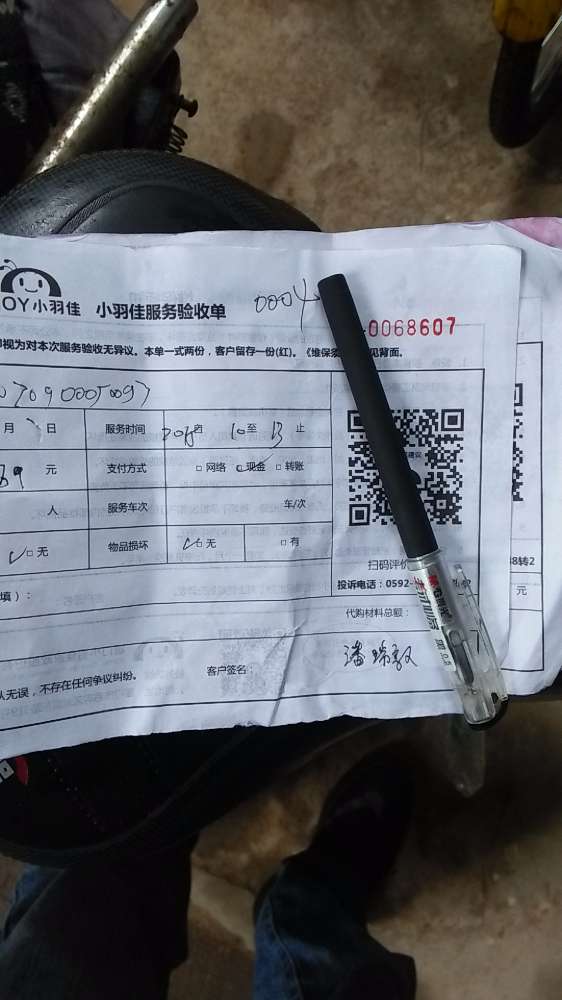 OY小羽佳 小羽佳服务验收单 0004 0068607
即视为对本次服务验收无异议。本单一式两份，客户留存一份(红)。《维保须 见背面。
月 日 服务时间 10至13止
元 支付方式 □网络 □现金 □转账
人 服务车次 车/次
□无 物品损坏 □无 □有
扫码评价
投诉电话：0592-
38转2
元
填）：
代购材料总额：
认无误，不存在任何争议纠纷。
客户签名：